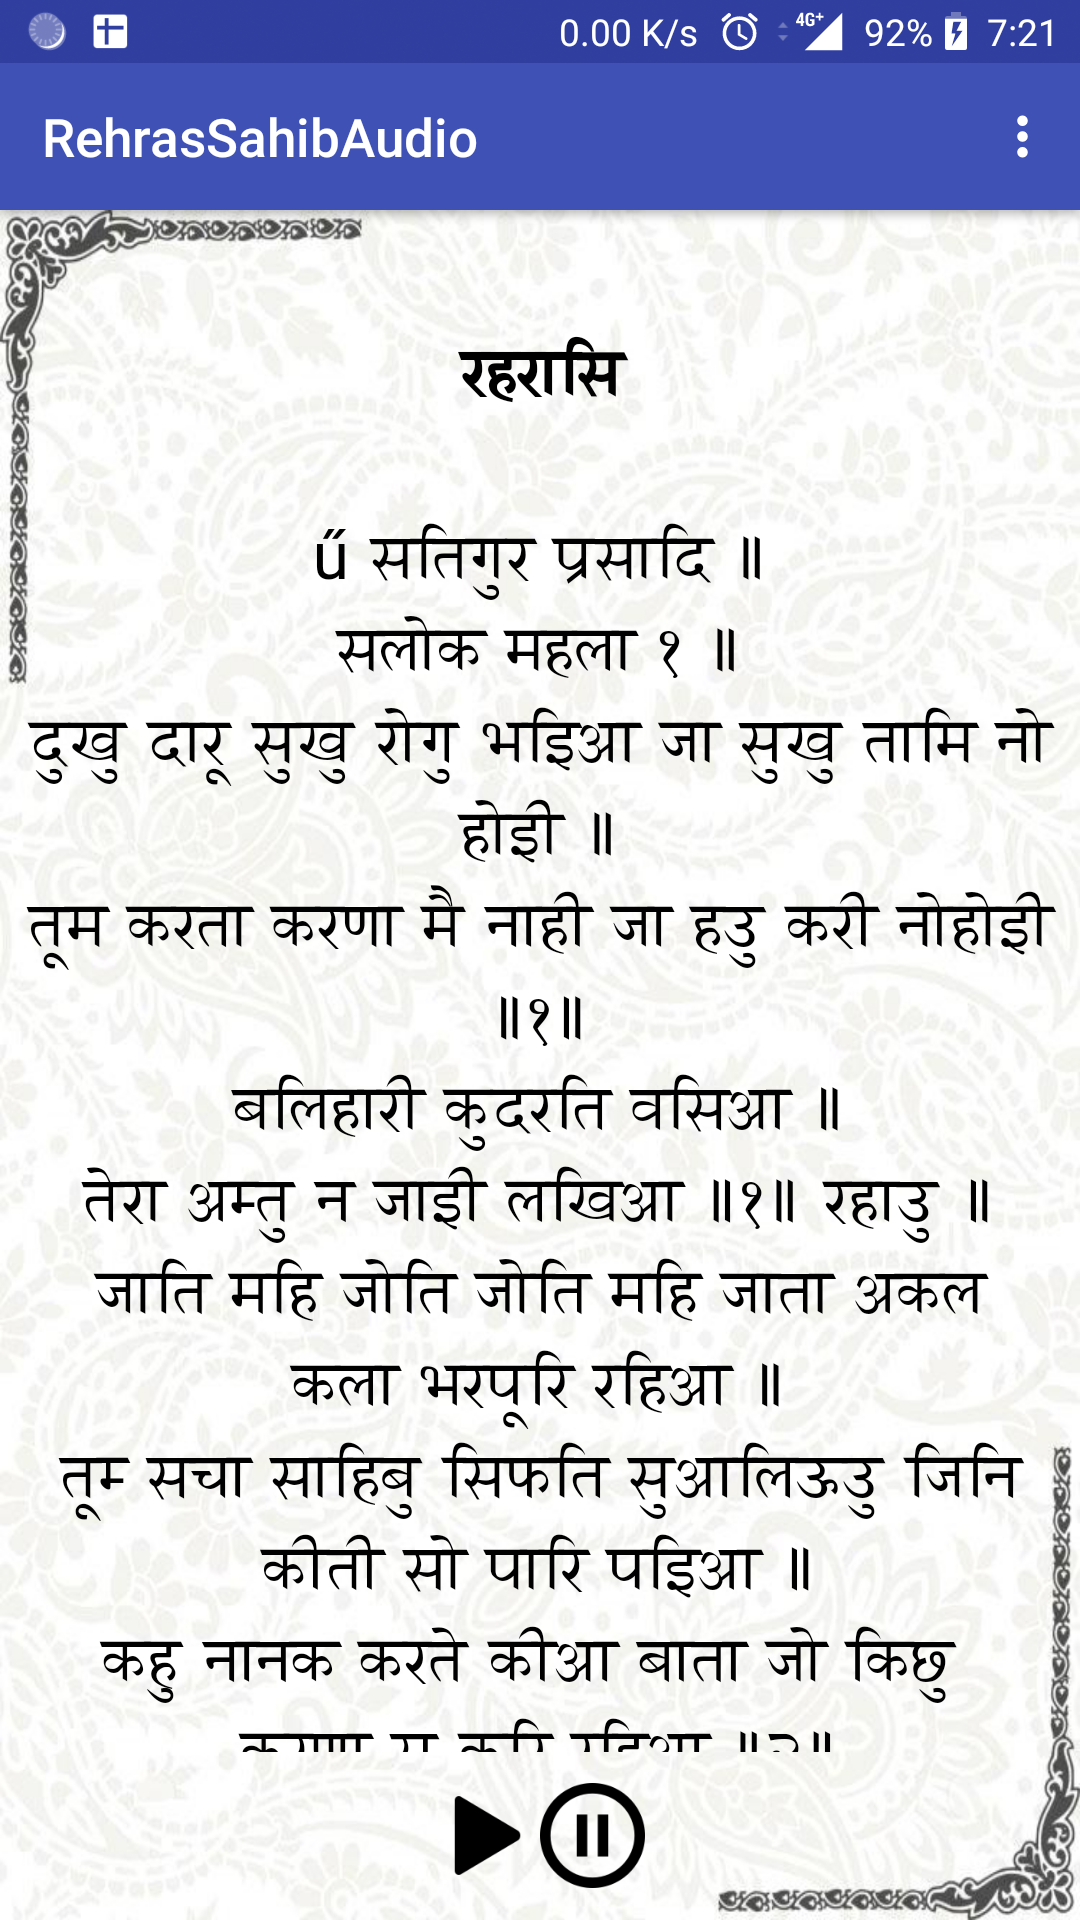 0.00 K/s 4G+ 92% 7:21
RehrasSahibAudio
रहरासि
ű सतिगुर प्रसादि ॥
सलोक महला १ ॥
दुखु दारू सुखु रोगु भइिआ जा सुखु तामि नो
होइी ॥
तूम करता करणा मै नाही जा हउु करी नोहोइी
॥१॥
बलिहारी कुदरति वसिआ ॥
तेरा अम्तु न जाइी लखिआ ॥१॥ रहाउु ॥
जाति महि जोति जोति महि जाता अकल
कला भरपूरि रहिआ ॥
तूम्म सचा साहिबु सिफति सुआलिऊउु जिनि
कीती सो पारि पइिआ ॥
कहु नानक करते कीआ बाता जो किछु